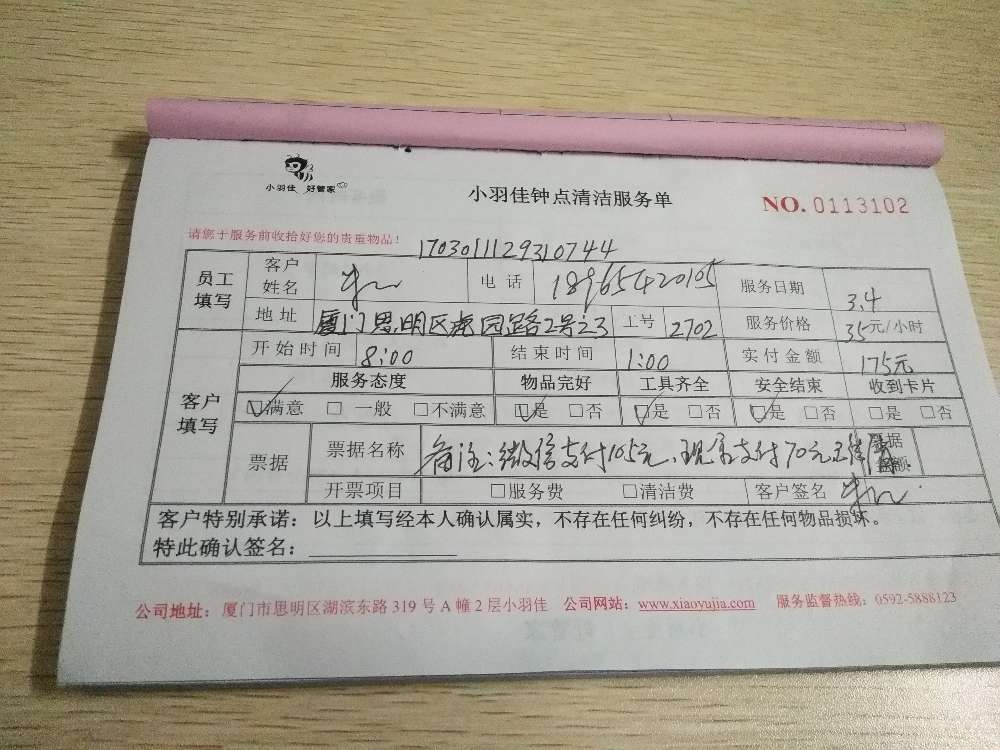 小羽佳 好管家
小羽佳钟点清洁服务单
NO. 0113102
请您于服务前收拾好您的贵重物品!
1703011129310744
员工填写 客户姓名 电话 18965420105 服务日期 3.4
地址 厦门思明区虎园路2号之3 工号 2702 服务价格 35元/小时
客户填写 开始时间 8:00 结束时间 1:00 实付金额 175元
服务态度 物品完好 工具齐全 安全结束 收到卡片
☑满意 □一般 □不满意 ☑是 □否 ☑是 □否 ☑是 □否 □是 □否
票据 票据名称 备注:微信支付105元、现金支付70元 票据金额
开票项目 □服务费 □清洁费 客户签名
客户特别承诺:以上填写经本人确认属实,不存在任何纠纷,不存在任何物品损坏。
特此确认签名:
公司地址:厦门市思明区湖滨东路 319 号 A 幢 2 层小羽佳 公司网站:www.xiaoyujia.com 服务监督热线:0592-5888123